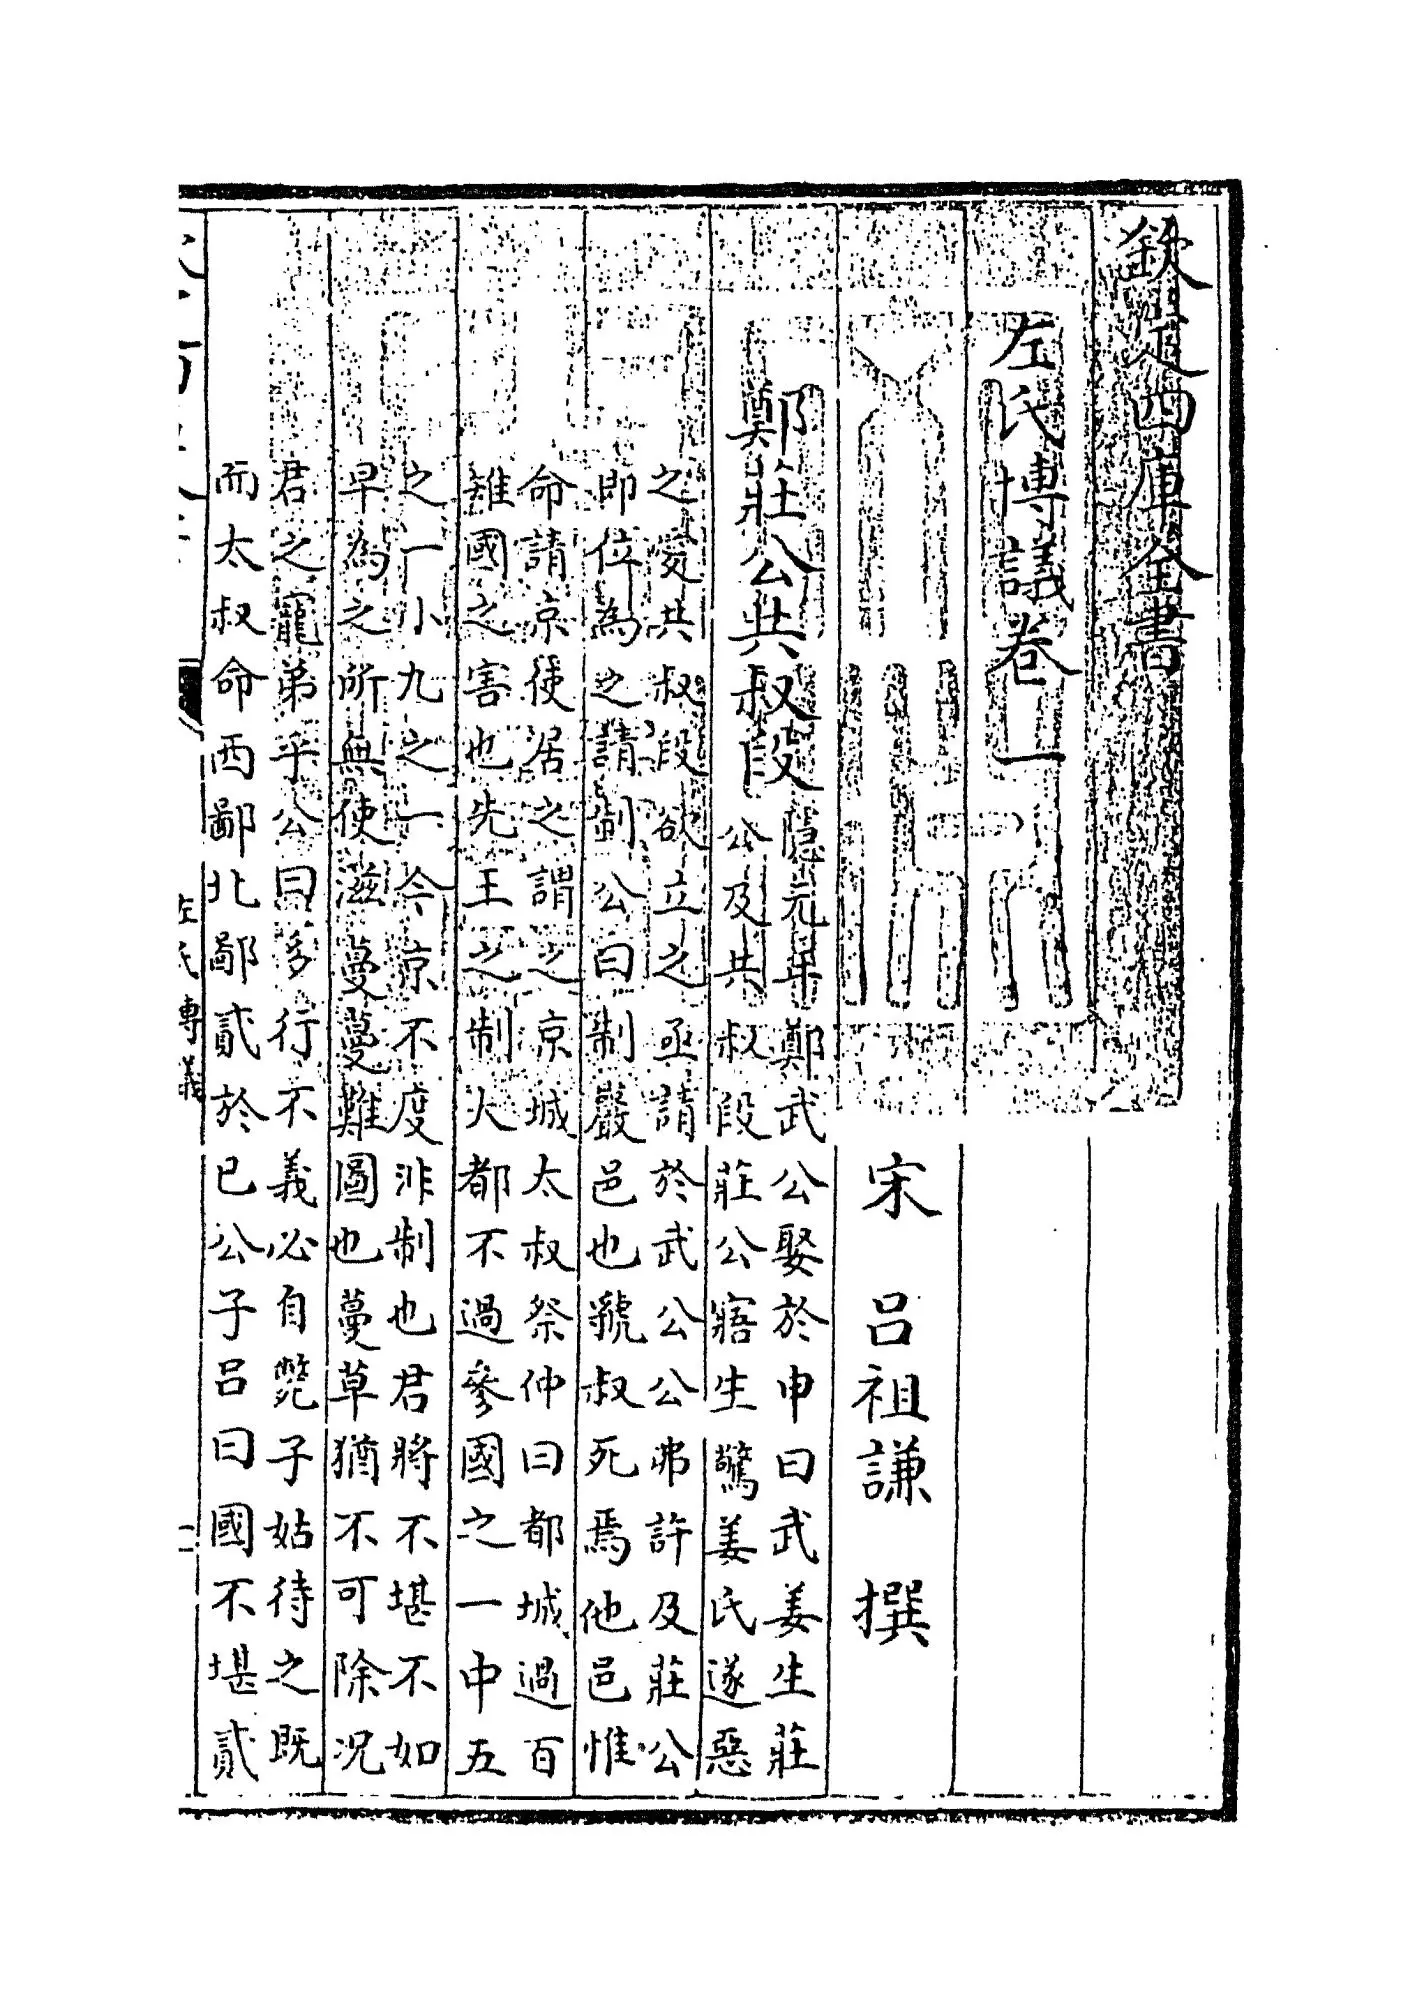 欽定四庫全書
左氏博議卷一
宋 呂祖謙 撰
鄭莊公共叔段
隱元年鄭武公娶於申曰武姜生莊
公及共叔段莊公寤生驚姜氏遂惡
之愛共叔段欲立之亟請於武公公弗許及莊公
即位為之請制公曰制嚴邑也虢叔死焉他邑惟
命請京使居之謂之京城太叔祭仲曰都城過百
雉國之害也先王之制大都不過參國之一中五
之一小九之一今京不度非制也君將不堪不如
早為之所無使滋蔓蔓難圖也蔓草猶不可除况
君之寵弟乎公曰多行不義必自斃子姑待之既
而太叔命西鄙北鄙貳於已公子呂曰國不堪貳
左氏博議